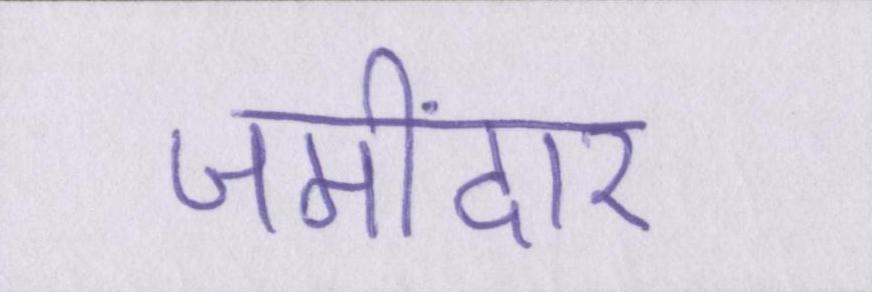 जमींदार